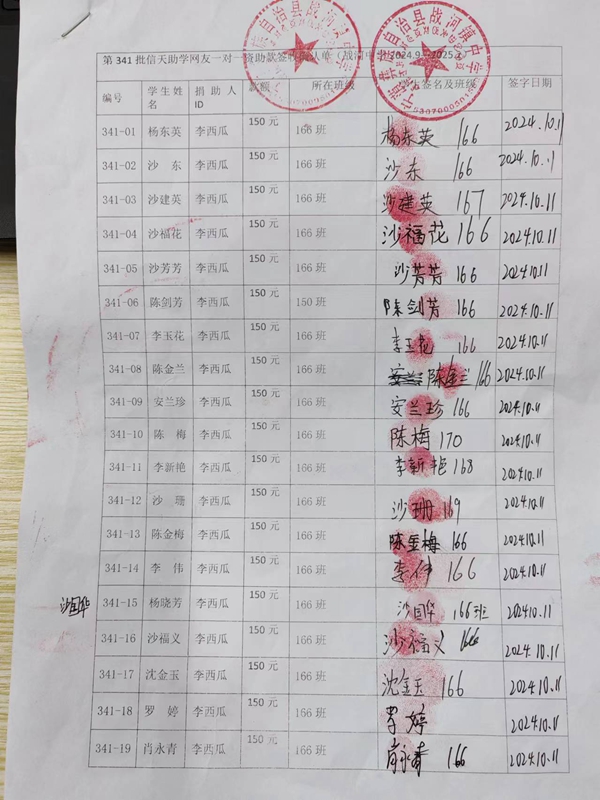 自治县战河
自治县战河镇中学
530700050
第 341 批信天助学网友一对一资助款签收确认单（战河中学 2024.9-2025.
编号 学生姓名 捐助人ID 款额 所在班级 学生签名及班级 签字日期
341-01 杨东英 李西瓜 150 元 166 班 杨东英 166 2024.10.11
341-02 沙 东 李西瓜 150 元 166 班 沙东 166 2024.10.11
341-03 沙建英 李西瓜 150 元 166 班 沙建英 167 2024.10.11
341-04 沙福花 李西瓜 150 元 166 班 沙福花 166 2024.10.11
341-05 沙芳芳 李西瓜 150 元 166 班 沙芳芳 166 2024.10.11
341-06 陈剑芳 李西瓜 150 元 150 班 陈剑芳 166 2024.10.11
341-07 李玉花 李西瓜 150 元 166 班 李玉花 166 2024.10.11
341-08 陈金兰 李西瓜 150 元 166 班 陈金兰 166 2024.10.11
341-09 安兰珍 李西瓜 150 元 166 班 安兰珍 166 2024.10.11
341-10 陈 梅 李西瓜 150 元 166 班 陈梅 170 2024.10.11
341-11 李新艳 李西瓜 150 元 166 班 李新艳 168 2024.10.11
341-12 沙 珊 李西瓜 150 元 166 班 沙珊 169 2024.10.11
341-13 陈金梅 李西瓜 150 元 166 班 陈金梅 166 2024.10.11
341-14 李 伟 李西瓜 150 元 166 班 李伟 166 2024.10.11
沙国华 341-15 杨晓芳 李西瓜 150 元 166 班 沙国华 166班 2024.10.11
341-16 沙福义 李西瓜 150 元 166 班 沙福义 166 2024.10.11
341-17 沈金玉 李西瓜 150 元 166 班 沈金玉 166 2024.10.11
341-18 罗 婷 李西瓜 150 元 166 班 罗婷 2024.10.11
341-19 肖永青 李西瓜 150 元 166 班 肖永青 166 2024.10.11